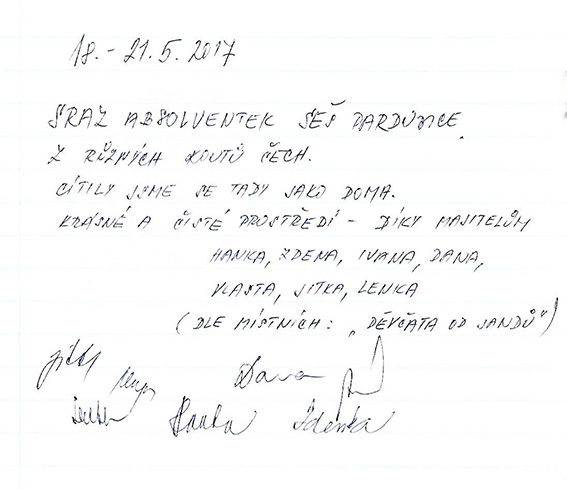 18. - 21. 5. 2017
SRAZ ABSOLVENTEK SEŠ PARDUBICE
Z RŮZNÝCH KOUTŮ ČECH.
CÍTILY JSME SE TADY JAKO DOMA.
KRÁSNÉ A ČISTÉ PROSTŘEDÍ - DÍKY MAJITELŮM
HANKA, ZDENA, IVANA, DANA,
VLASTA, JITKA, LENKA
(DLE MÍSTNÍCH: „DĚVČATA OD JANDŮ")
Dana
Lenka Hanka Zdenka